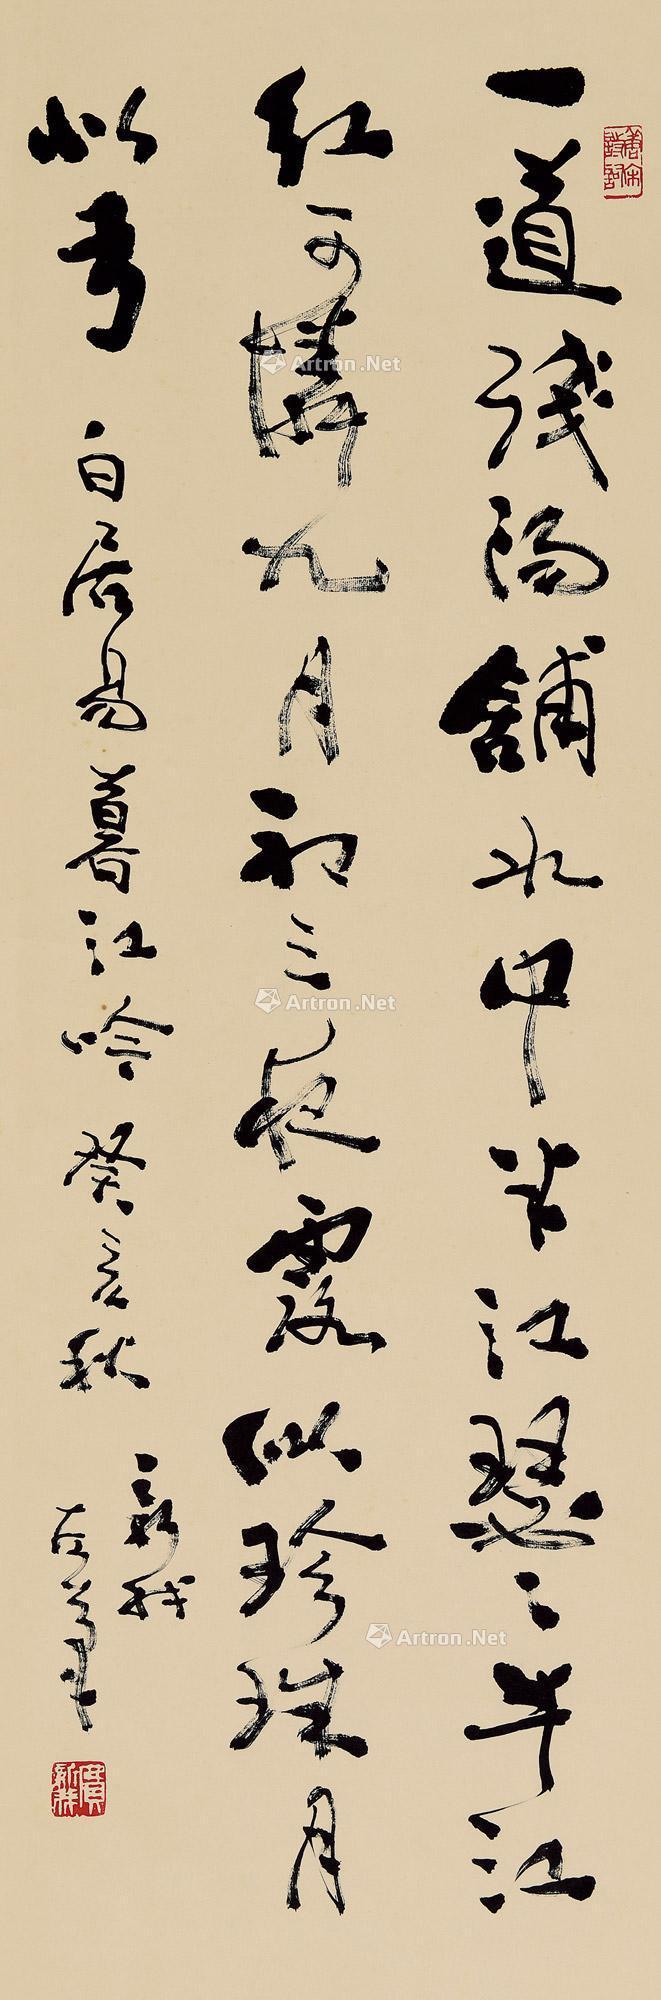 一道残阳铺水中半江瑟々半江
红可怜九月初三夜露似珍珠月
似弓
白居易暮江吟 癸亥秋
新我
左笔
Artron.Net
Artron.Net
Artron.Net